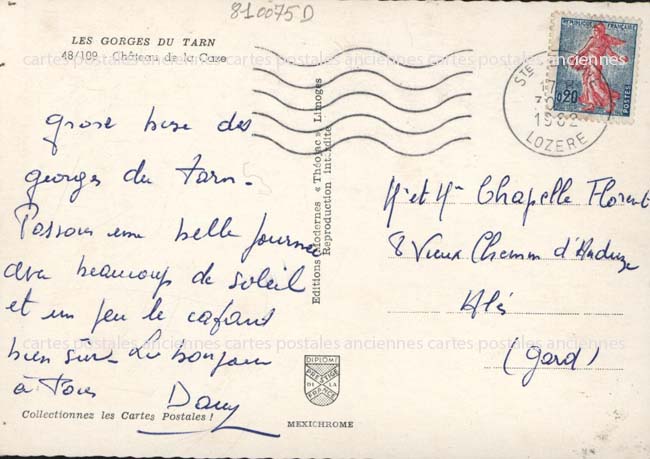 810075D
LES GORGES DU TARN
48/109 - Château de la Caze
grosse bise des
georges du Tarn.
Passons une belle journée
avec beaucoup de soleil
et un peu le cafard
bien sûr. Le bonjour
à Tous Dany
Collectionnez les Cartes Postales !
Editions Modernes « Théojac » Limoges
Reproduction interdite
DIPLOME
PRESTIGE
DE LA
FRANCE
MEXICHROME
REPUBLIQUE FRANÇAISE
0,20
POSTES
STE
1962
LOZERE
Mr et Me Chapelle Florent
8 Vieux Chemin d'Anduze
Alès
(Gard)
cartes postales anciennes cartes postales anciennes
cartes postales anciennes cartes postales anciennes